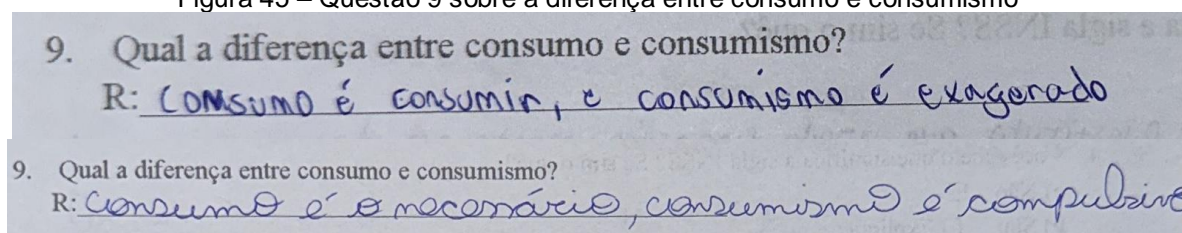 Figura 45 – Questão 9 sobre a diferença entre consumo e consumismo
9. Qual a diferença entre consumo e consumismo?
R: Consumo é consumir, e consumismo é exagerado
9. Qual a diferença entre consumo e consumismo?
R: Consumo é o necessário, consumismo é compulsivo